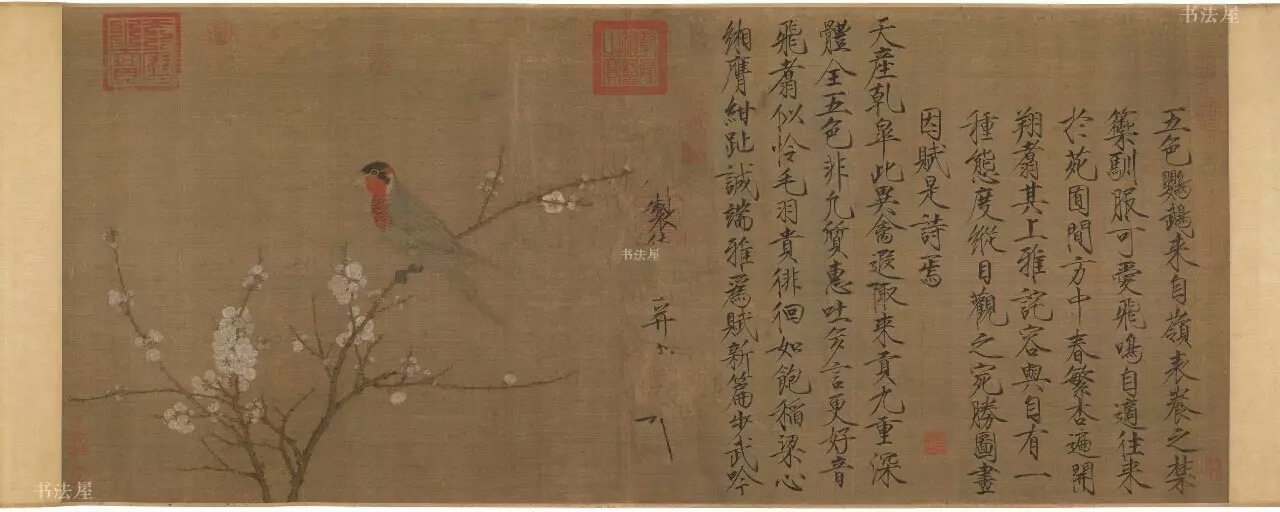 五色鸚鵡来自嶺表養之禁
籞馴服可愛飛鳴自適往来
於苑囿間方中春繁杏遍開
翔翥其上雅詫容與自有一
種態度縱目觀之宛勝圖畫
因賦是詩焉
天産乹皐此異禽遐陬来貢九重深
體全五色非凡質惠吐多言更好音
飛翥似怜毛羽貴徘徊如飽稲粱心
緗膺紺趾誠端雅為賦新篇步武吟
製
并書
书法屋
书法屋
书法屋